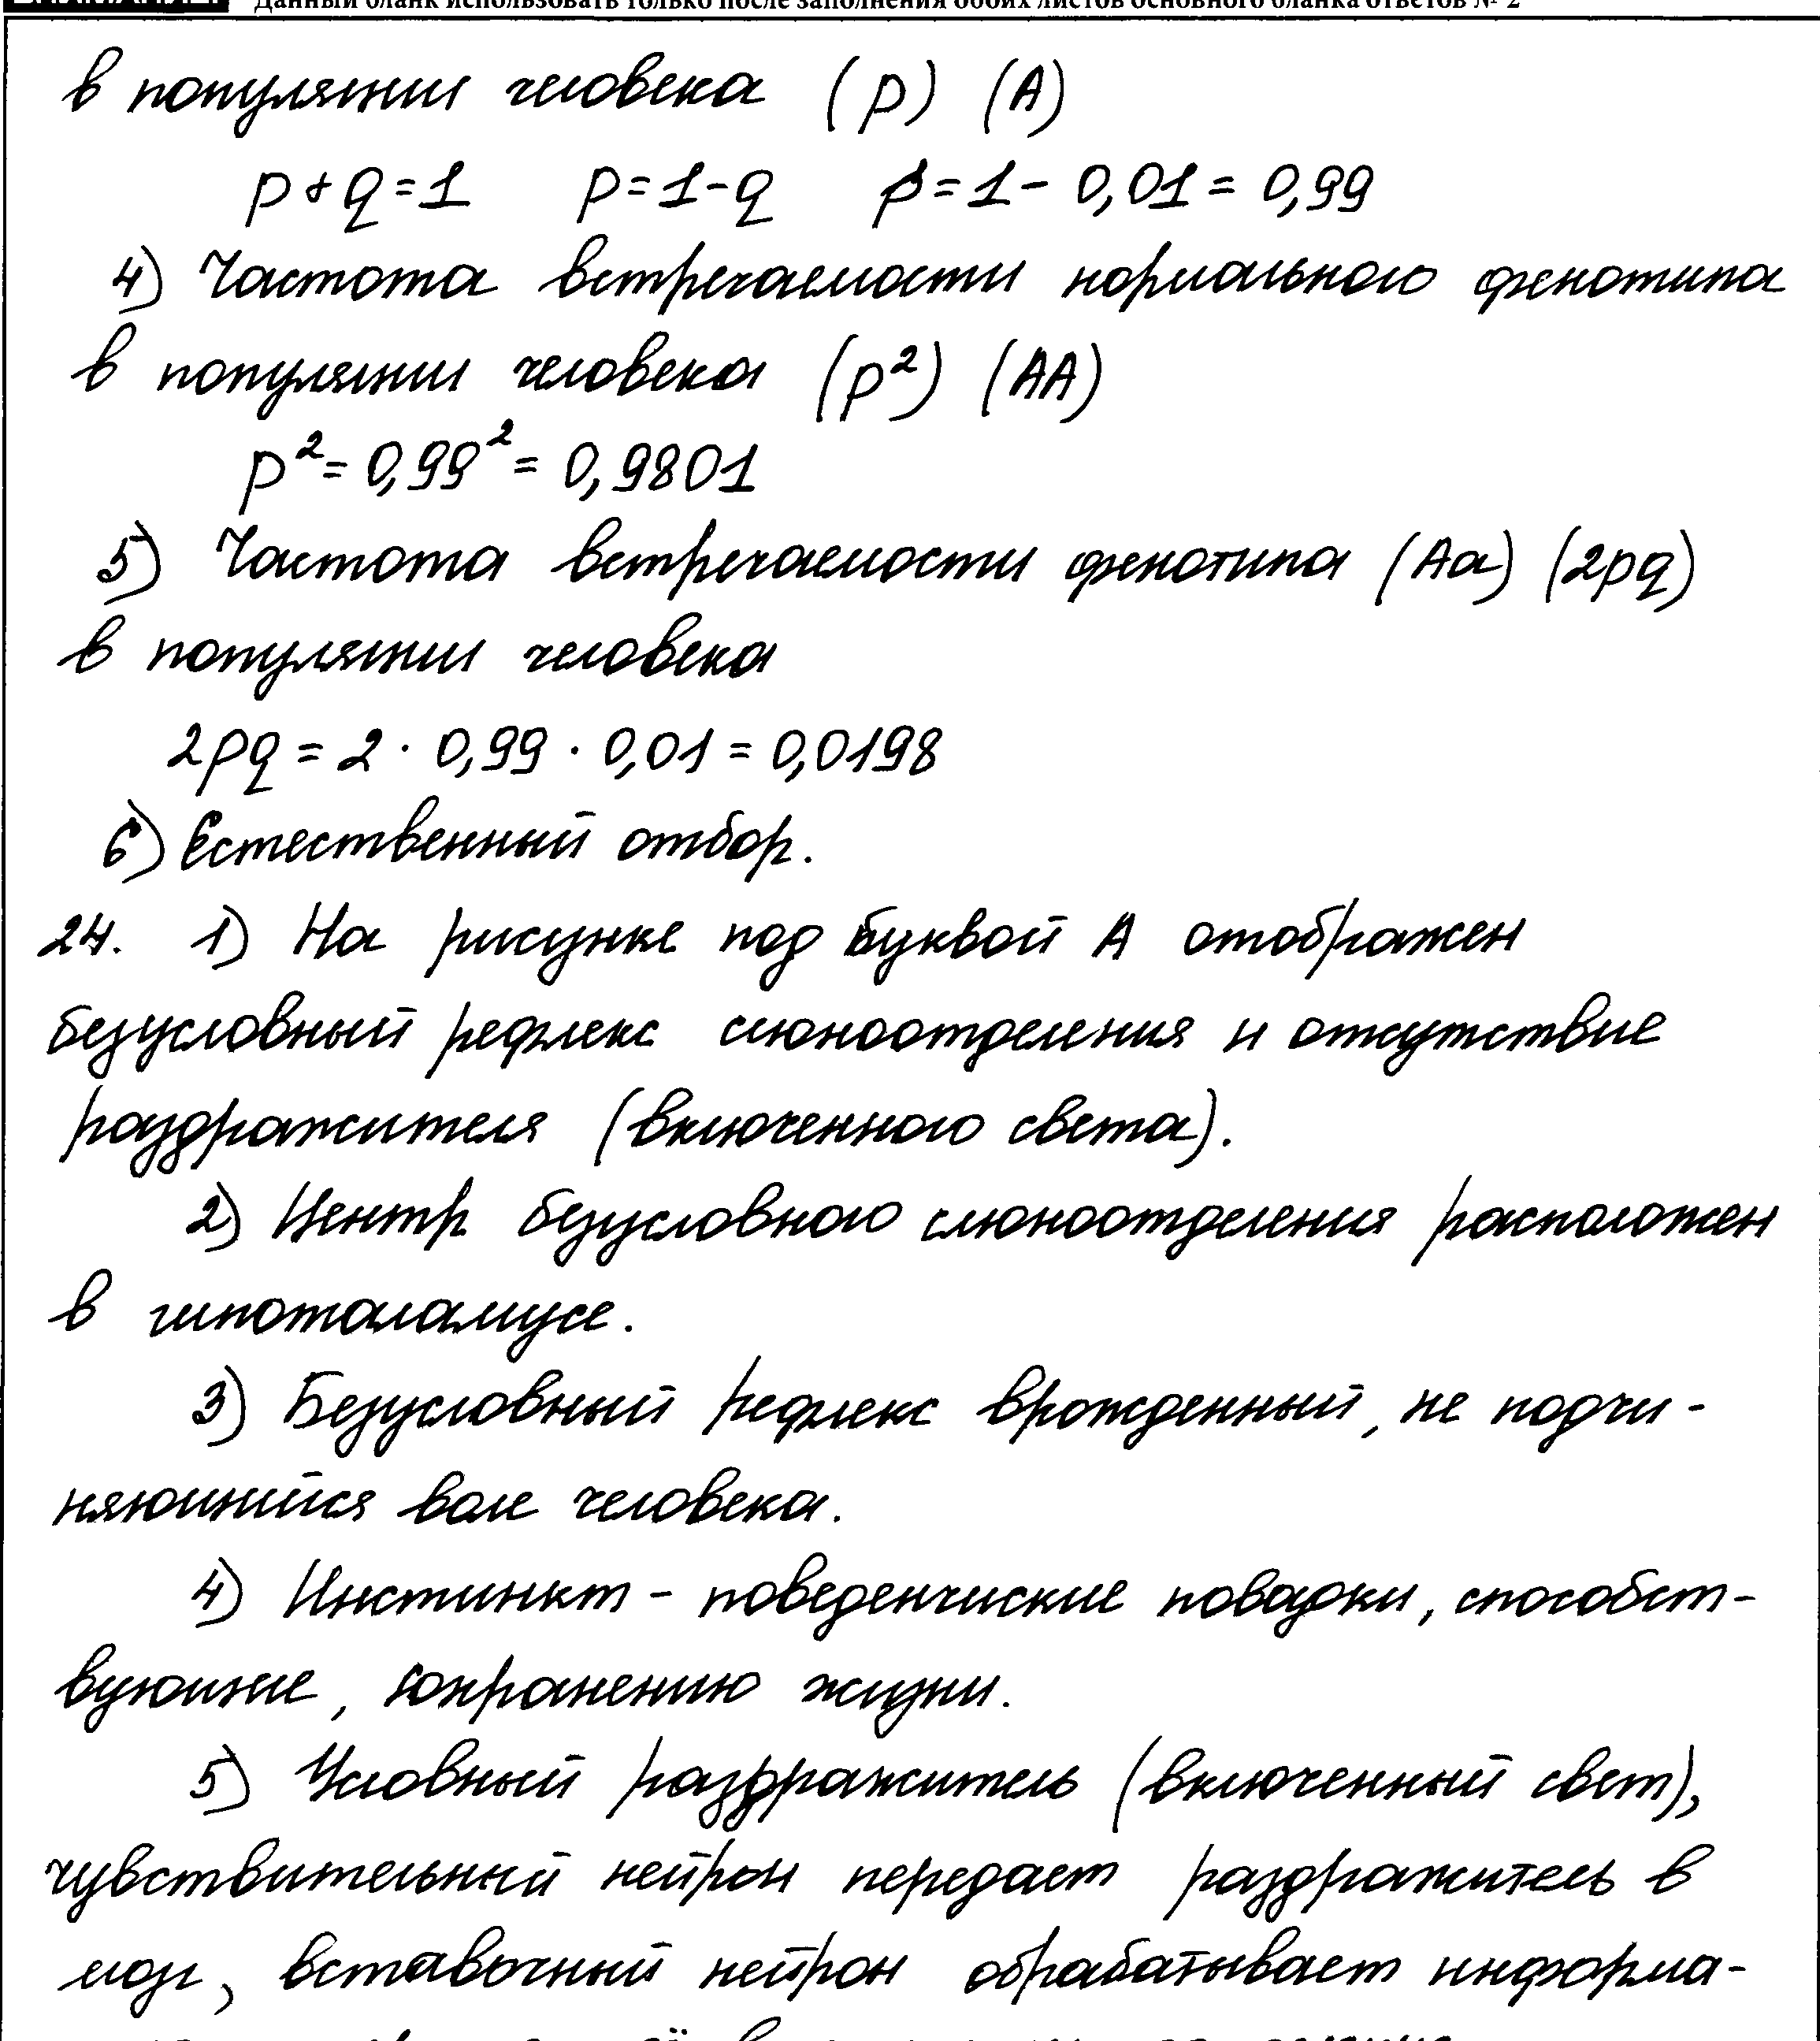 Данный бланк использовать только после заполнения обоих листов основного бланка ответов № 2
в популяции человека (p) (A)
p+q=1 p=1-q p=1- 0,01 = 0,99
4) Частота встречаемости нормального фенотипа
в популяции человека (p²) (AA)
p²= 0,99² = 0,9801
5) Частота встречаемости фенотипа (Aa) (2pq)
в популяции человека
2pq = 2 · 0,99 · 0,01 = 0,0198
6) Естественный отбор.
24. 1) На рисунке под буквой А отображен
безусловный рефлекс слюноотделения и отсутствие
раздражителя (включенного света).
2) Центр безусловного слюноотделения расположен
в гипоталамусе.
3) Безусловный рефлекс врожденный, не подчи-
няющийся воле человека.
4) Инстинкт - поведенчиские повадки, способст-
вующие, сохранению жизни.
5) Условный раздражитель (включенный свет),
чувствительный нейрон передает раздражитель в
мозг, вставочный нейрон обрабатывает информа-